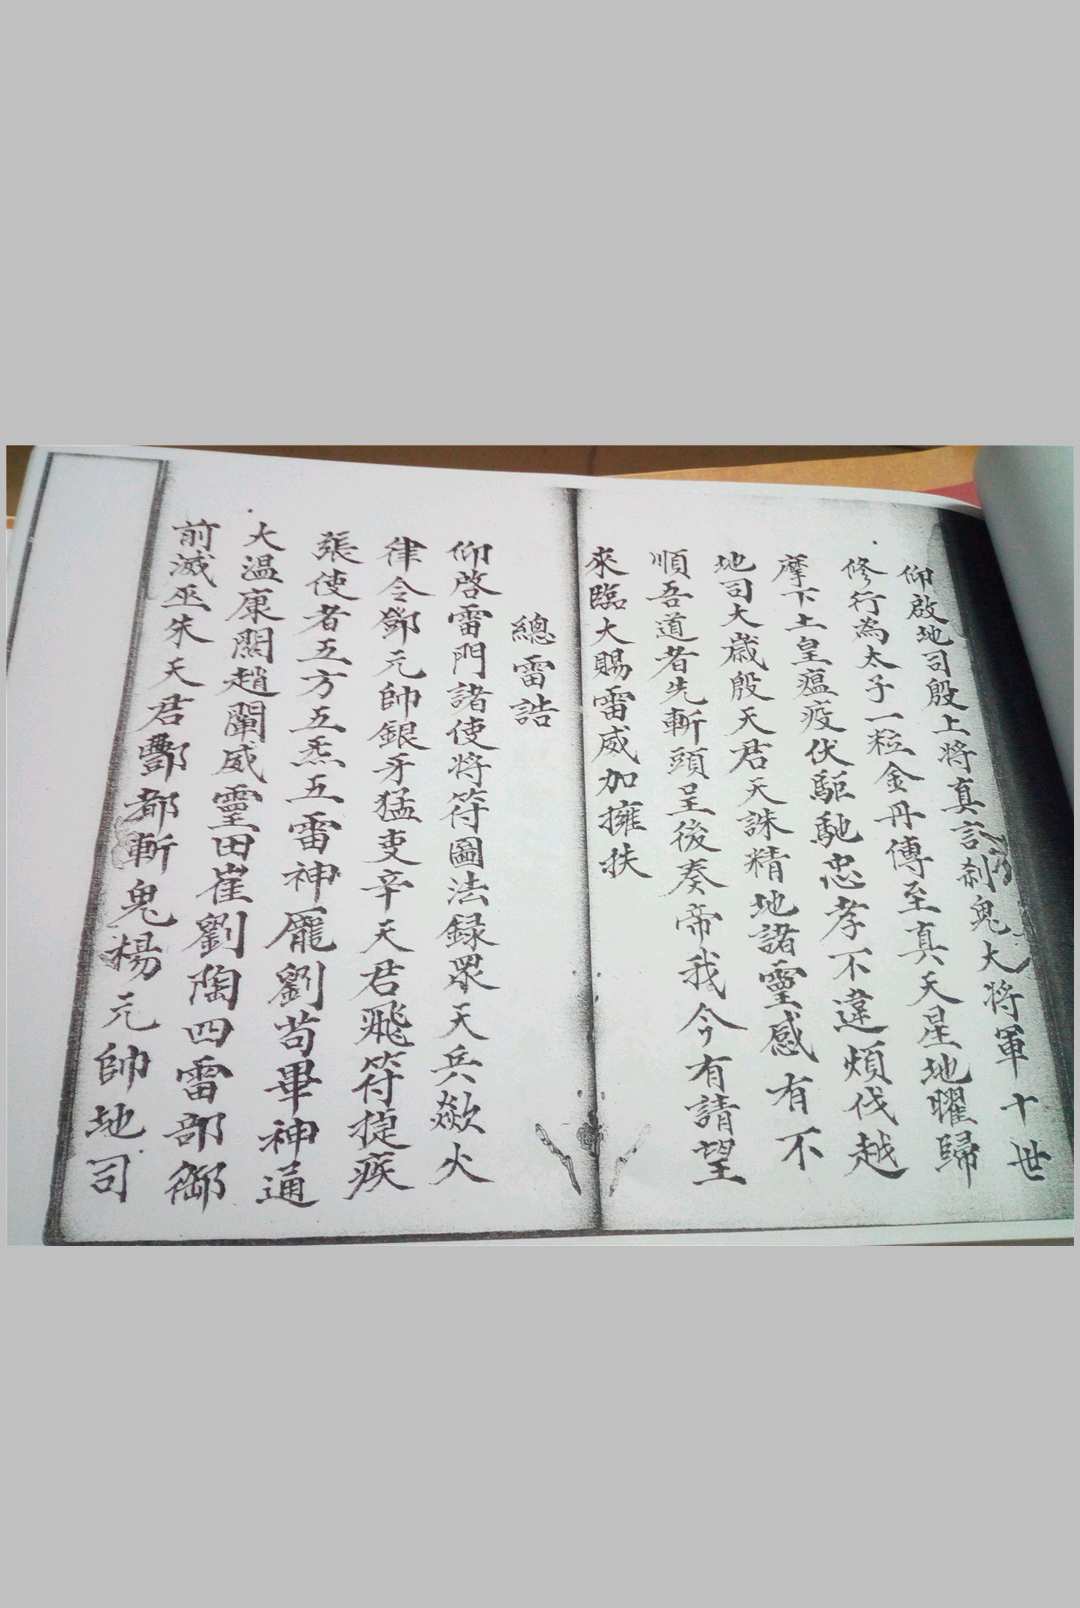 仰啟地司殷上將真言刹鬼大將軍十世
修行為太子一粒金丹傳至真天星地曜歸
摩下土皇瘟疫伏驅馳忠孝不違煩伐越
地司大歲殷天君天誅精地諸靈感有不
順吾道者先斬頭呈後奏帝我今有請望
來臨大賜雷威加擁扶
總雷誥
仰啓雷門諸使將符圖法録眾天兵歘火
律令鄧元帥銀牙猛吏辛天君飛符捷疾
張使者五方五炁五雷神龐劉苟畢神通
大温康關趙闡威靈田崔劉陶四雷部御
前滅巫朱天君酆都斬鬼楊元帥地司